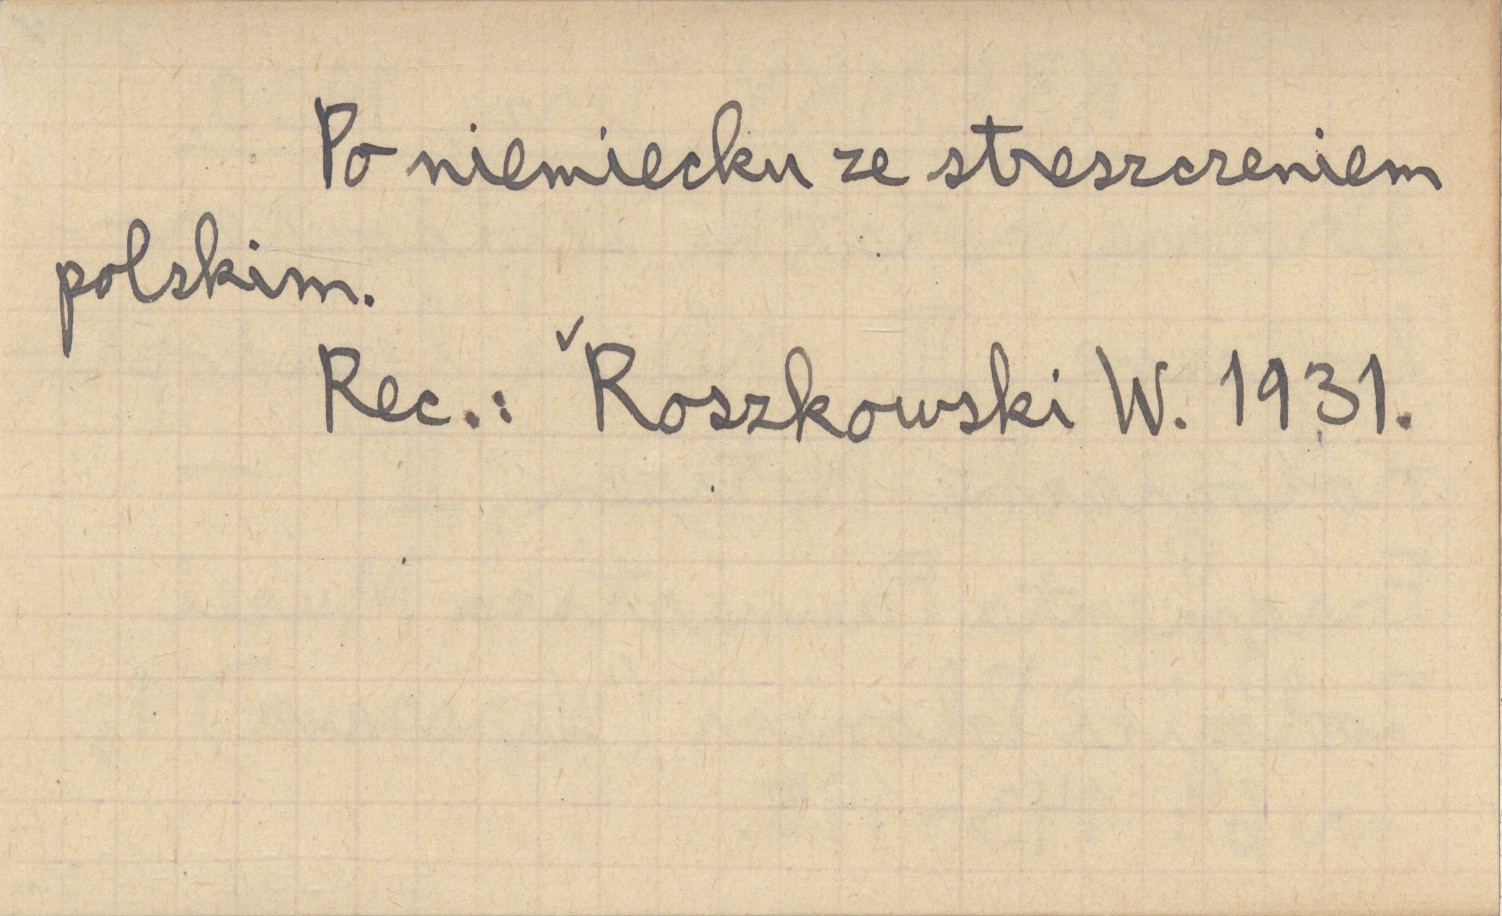 Po niemiecku ze streszczeniem
polskim.
Rec.: ✓Roszkowski W. 1931.